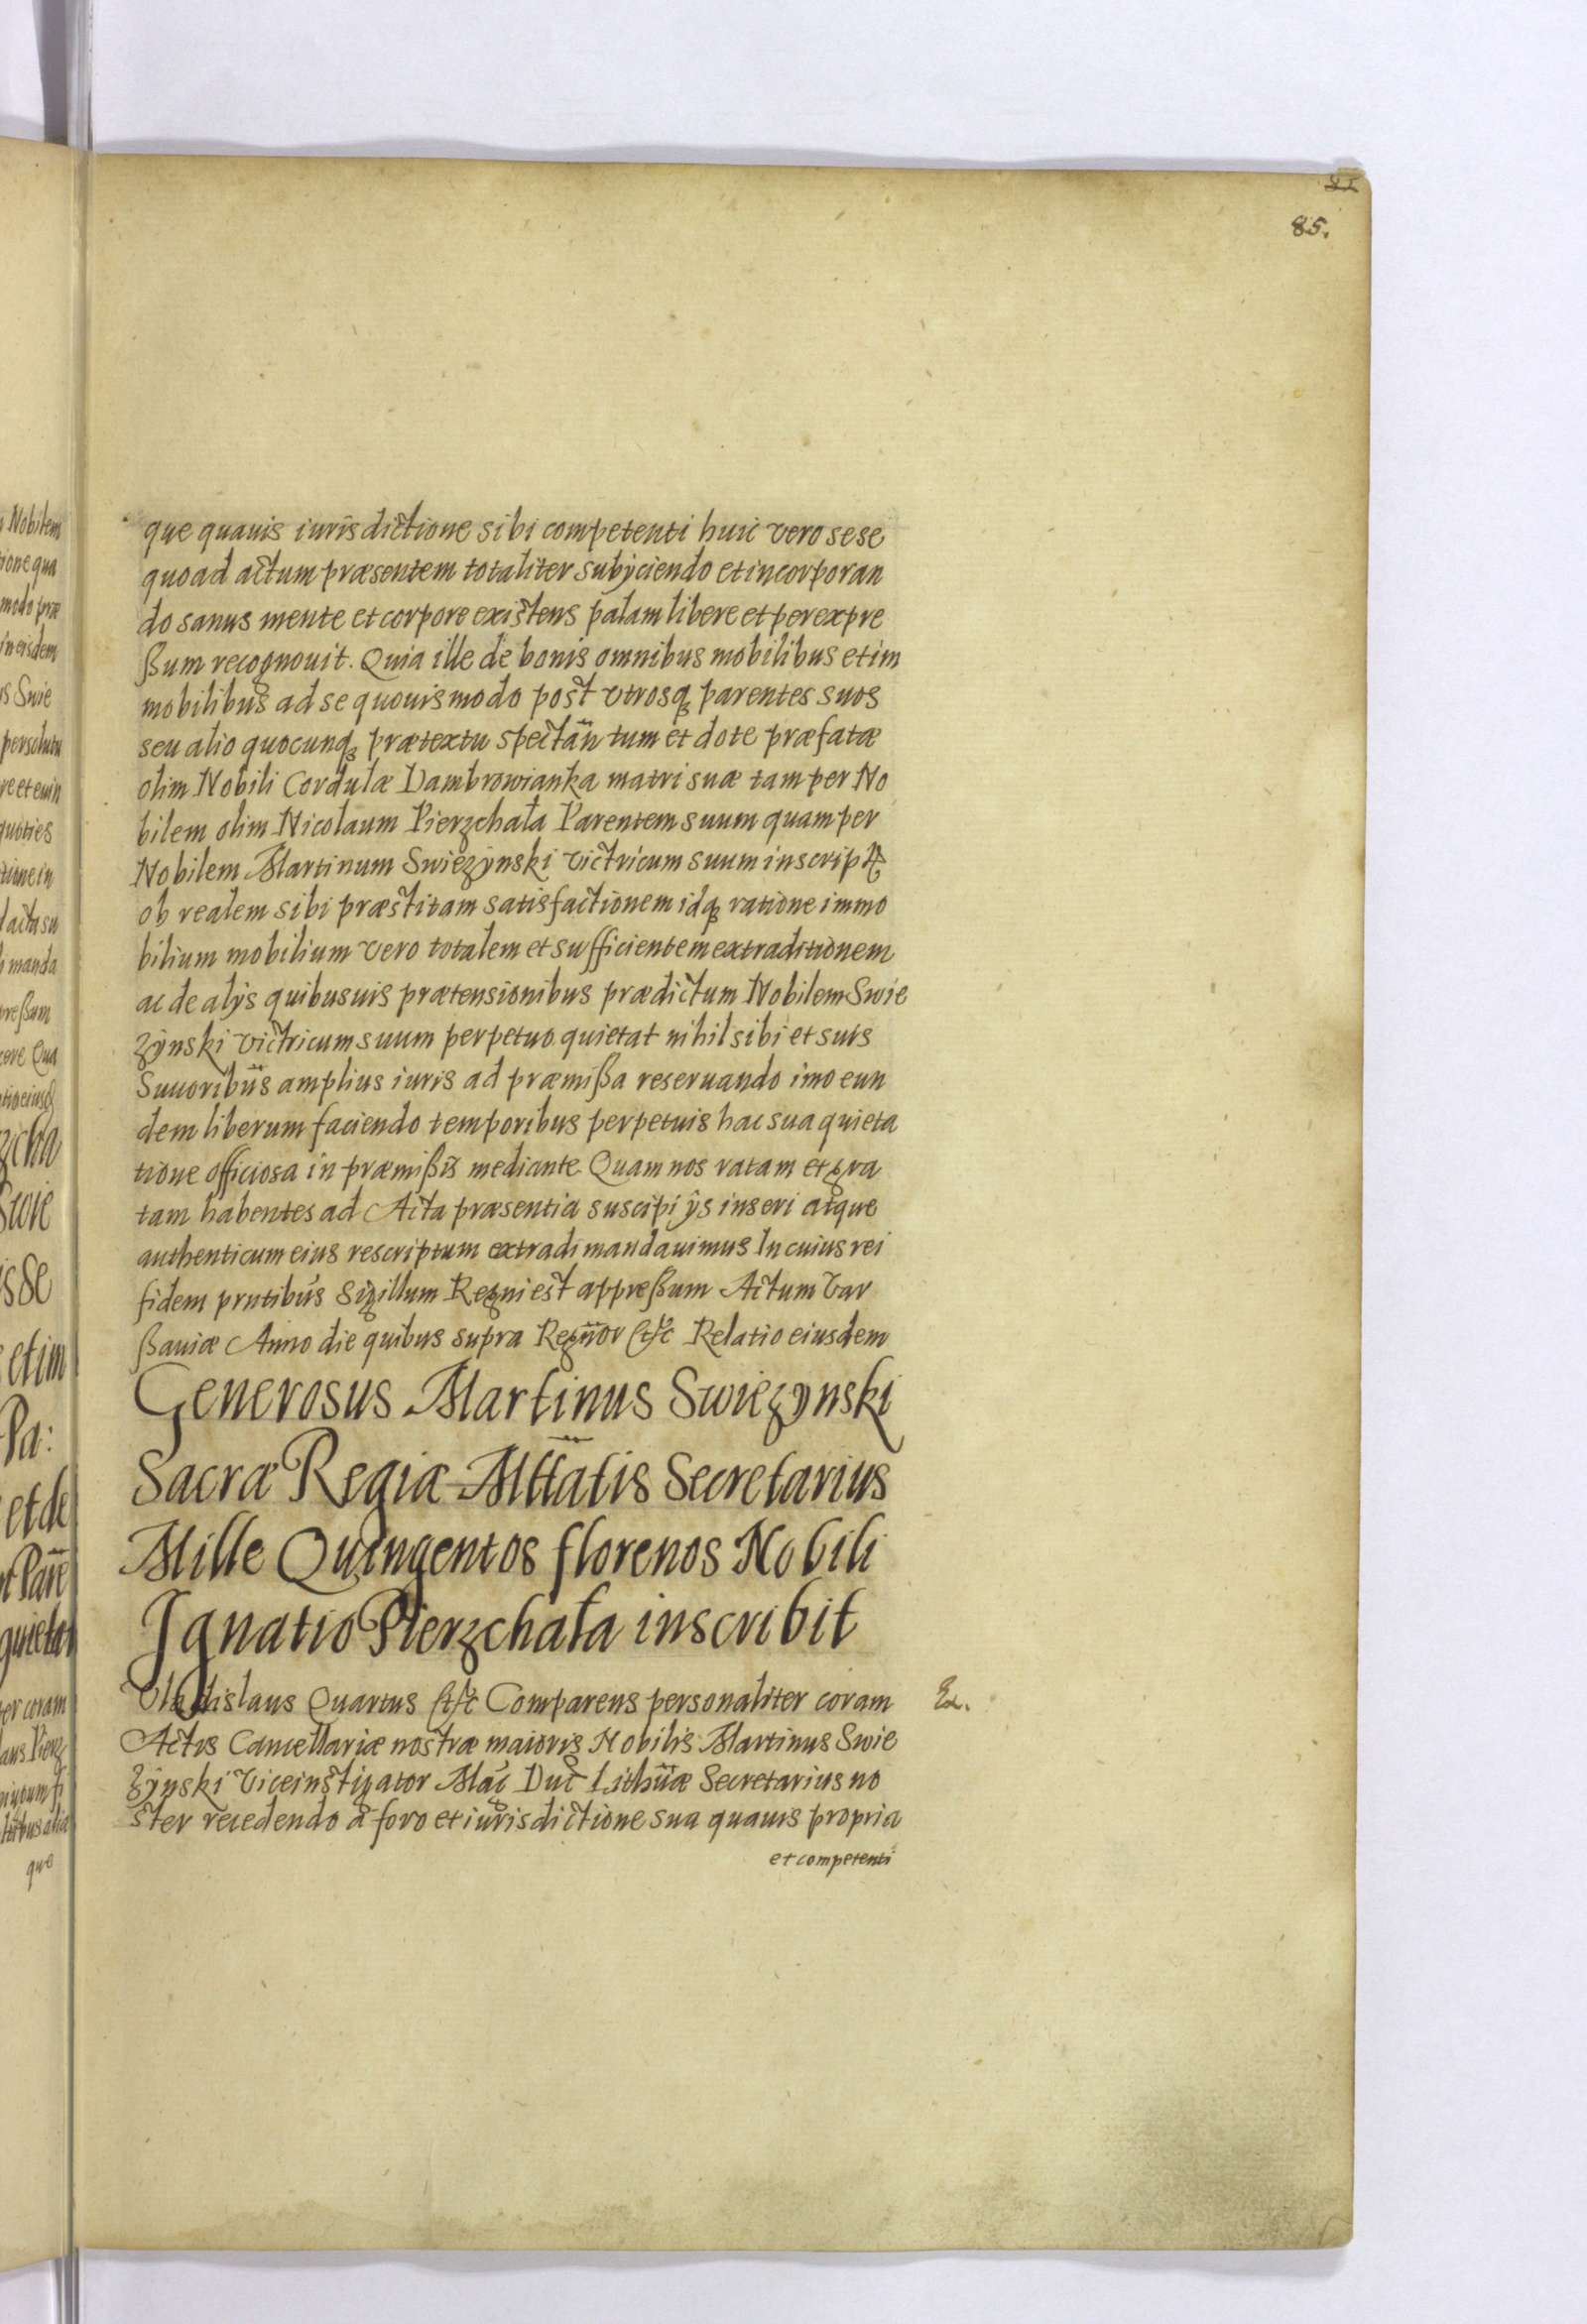 85.
que quauis iurisdictione sibi competenti huic vero sese
quoad actum præsentem totaliter subÿciendo et incorporan
do sanus mente et corpore existens palam libere et per expre
ßum recognouit. Quia ille de bonis omnibus mobilibus et im
mobilibus ad se quouismodo post vtrosq₃ parentes suos
seu alio quocunq₃ prætextu spectan̄ tum et dote præfatæ
olim Nobili Cordulæ Dambrowianka matri suæ tam per No
bilem olim Nicolaum Pierzchała Parentem suum quam per
Nobilem Martinum Swieżynski victricum suum inscripꝝ
ob realem sibi præstitam satisfactionem idq₃ ratione immo
bilium mobilium vero totalem et sufficientem extraditionem
ac de alÿs quibusuis prætensionibus prædictum Nobilem Swie
żynski victricum suum perpetuo quietat nihil sibi et suis
Suuoribūs amplius iuris ad præmißa reseruando imo eun
dem liberum faciendo temporibus perpetuis hac sua quieta
tione officiosa in præmißis mediante. Quam nos ratam et gra
tam habentes ad Acta præsentia suscipi ÿs inseri atque
authenticum eius rescriptum extradi mandauimus In cuius rei
fidem prntibus Sigillum Regni est appreßum Actum Var
ßauiæ Anno die quibus supra Regn̄or etc Relatio eiusdem
Generosus Martinus Swieżynski
Sacræ Regiæ Mttatis Secretarius
Mille Quingentos florenos Nobili
Ignatio Pierzchała inscribit
Vladislaus Quartus etc Comparens personaliter coram
Ex.
Actis Cancellariæ nostræ maioris Nobilis Martinus Swie
żynski Viceinstigator Mag Duc Lithūæ Secretarius no
ster recedendo a foro et iurisdictione sua quauis propria
et competenti